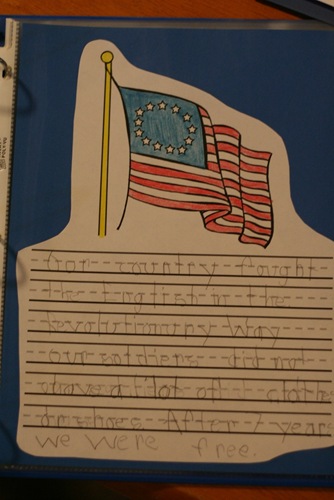 our country fought
the English in the
Revolutionary Way
our soldiers did not
have a lot of clothes
or shoes. After 7 years
we were free.